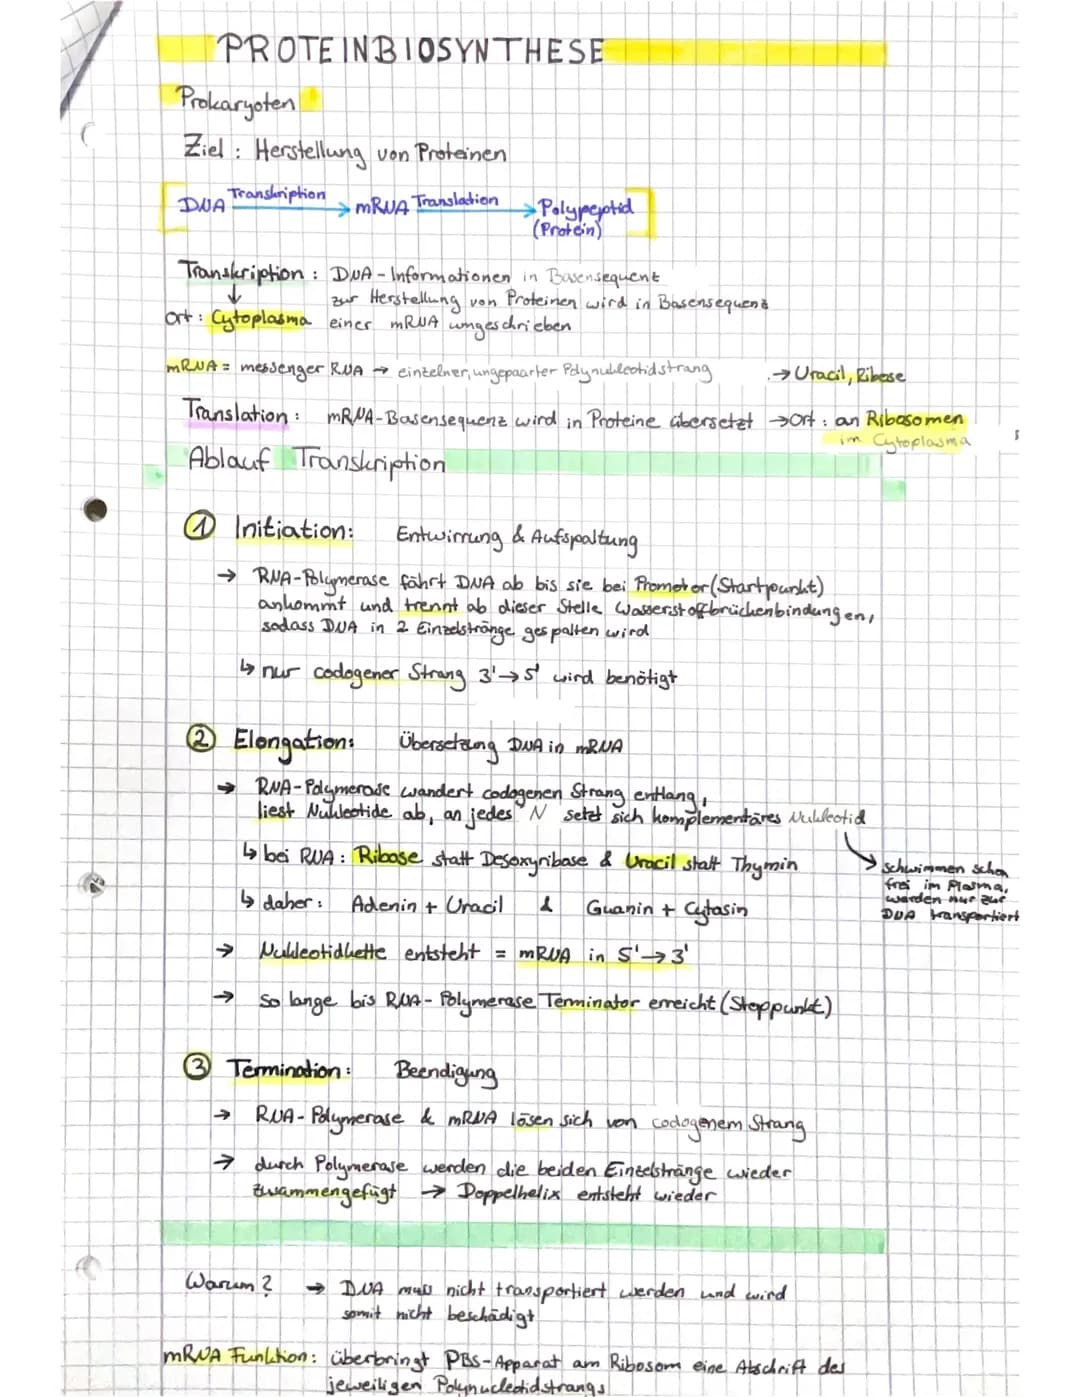 PROTEINBIOSYNTHESE
Prokaryoten
Ziel : Herstellung von Proteinen
DNA Transkription → mRNA Translation → Polypeptid
(Protein)
Transkription : DNA - Informationen in Basensequent
↓ zur Herstellung von Proteinen wird in Basensequenz
Ort : Cytoplasma einer mRNA umgeschrieben
mRNA = messenger RNA → einzelner, ungepaarter Polynukleotidstrang → Uracil, Ribose
Translation : mRNA-Basensequenz wird in Proteine übersetzt → Ort : an Ribosomen
im Cytoplasma
Ablauf Transkription
① Initiation: Entwirrung & Aufspaltung
→ RNA-Polymerase fährt DNA ab bis sie bei Promotor (Startpunkt)
ankommt und trennt ab dieser Stelle Wasserstoffbrückenbindungen,
sodass DNA in 2 Einzelstränge gespalten wird
↳ nur codogener Strang 3'→5' wird benötigt
② Elongation: Übersetzung DNA in mRNA
→ RNA-Polymerase wandert codogenen Strang entlang,
liest Nukleotide ab, an jedes N setzt sich komplementäres Nukleotid
↳ bei RNA : Ribose statt Desoxyribase & Uracil statt Thymin
schwimmen schon
frei im Plasma,
werden nur zur
DNA transportiert
↳ daher : Adenin + Uracil & Guanin + Cytosin
→ Nukleotidkette entsteht = mRNA in 5'→3'
→ so lange bis RNA - Polymerase Terminator erreicht (Stoppunkt)
③ Termination : Beendigung
→ RNA - Polymerase & mRNA lösen sich von codogenem Strang
→ durch Polymerase werden die beiden Einzelstränge wieder
zusammengefügt → Doppelhelix entsteht wieder
Warum ? → DNA muss nicht transportiert werden und wird
somit nicht beschädigt
mRNA Funktion : überbringt PBS-Apparat am Ribosom eine Abschrift des
jeweiligen Polynucleotidstrangs